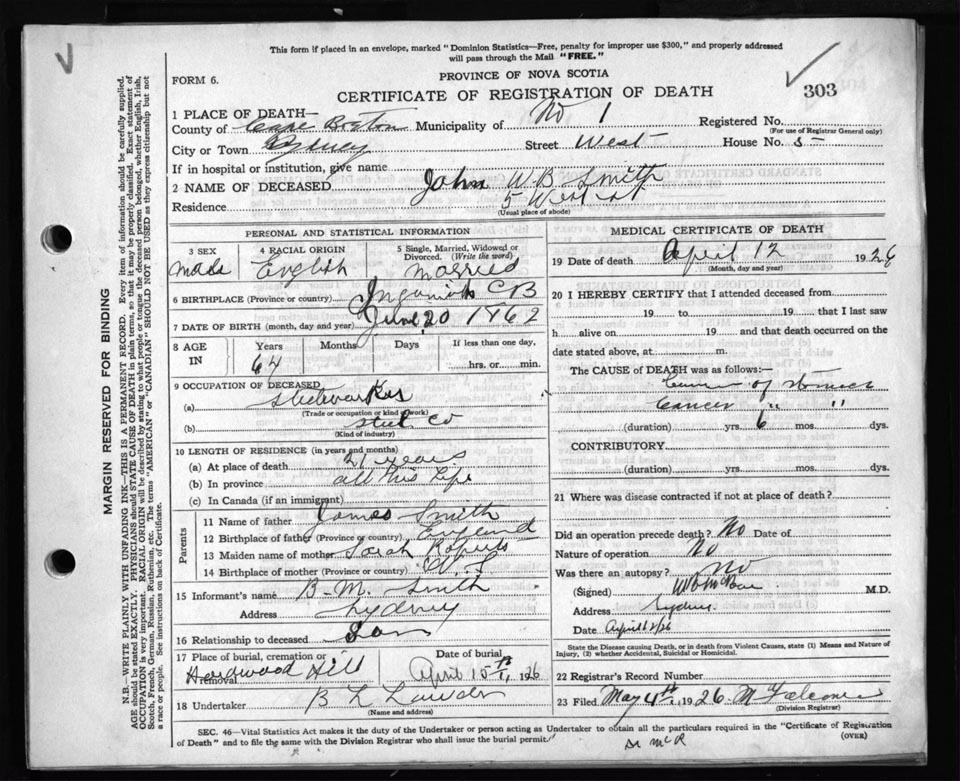 This form if placed in an envelope, marked "Dominion Statistics—Free, penalty for improper use $300," and properly addressed
will pass through the Mail "FREE."
FORM 6.
PROVINCE OF NOVA SCOTIA
CERTIFICATE OF REGISTRATION OF DEATH
303
1 PLACE OF DEATH—
County of Cape Breton Municipality of No 1 Registered No.
(For use of Registrar General only)
City or Town Sydney Street West House No. 5
If in hospital or institution, give name
2 NAME OF DECEASED John W B Smith
Residence 5 West st
(Usual place of abode)
MARGIN RESERVED FOR BINDING
N.B.—WRITE PLAINLY WITH UNFADING INK—THIS IS A PERMANENT RECORD. Every item of information should be carefully supplied.
AGE should be stated EXACTLY. PHYSICIANS should STATE CAUSE OF DEATH in plain terms, so that it may be properly classified. Exact statement of
OCCUPATION is very important. RACIAL ORIGIN will be described by stating to what people or tongue the deceased person belonged, whether English, Irish,
Scotch, French, German, Russian, Ruthenian, etc. The terms "AMERICAN" or "CANADIAN" SHOULD NOT BE USED as they express citizenship but not
a race or people. See instructions on back of Certificate.
PERSONAL AND STATISTICAL INFORMATION
3 SEX
Male
4 RACIAL ORIGIN
English
5 Single, Married, Widowed or
Divorced. (Write the word)
Married
6 BIRTHPLACE (Province or country) CB
7 DATE OF BIRTH (month, day and year) June 20 1862
8 AGE IN
Years
64
Months
Days
If less than one day,
hrs. or min.
9 OCCUPATION OF DECEASED
(a)
(Trade or occupation or kind of work)
(b) Steel Co
(Kind of industry)
10 LENGTH OF RESIDENCE (in years and months)
(a) At place of death 21 years
(b) In province all his life
(c) In Canada (if an immigrant)
Parents
11 Name of father James Smith
12 Birthplace of father (Province or country) England
13 Maiden name of mother Sarah Roberts
14 Birthplace of mother (Province or country)
15 Informant's name B. M. Smith
Address Sydney
16 Relationship to deceased Son
17 Place of burial, cremation or
removal Hardwood Hill
Date of burial
April 15th, 1926
18 Undertaker B L Lawder
(Name and address)
MEDICAL CERTIFICATE OF DEATH
19 Date of death April 12 1926
(Month, day and year)
20 I HEREBY CERTIFY that I attended deceased from
19 to 19 that I last saw
h alive on 19 and that death occurred on the
date stated above, at m.
The CAUSE of DEATH was as follows:—
Cancer of stomach
Cancer " "
(duration) yrs. 6 mos. dys.
CONTRIBUTORY
(duration) yrs. mos. dys.
21 Where was disease contracted if not at place of death?
Did an operation precede death? No Date of
Nature of operation No
Was there an autopsy? No
(Signed) M.D.
Address Sydney
Date April 12/26
State the Disease causing Death, or in death from Violent Causes, state (1) Means and Nature of
Injury, (2) whether Accidental, Suicidal or Homicidal.
22 Registrar's Record Number
23 Filed May 4th 1926 M Falconer
(Division Registrar)
SEC. 46—Vital Statistics Act makes it the duty of the Undertaker or person acting as Undertaker to obtain all the particulars required in the "Certificate of Registration
of Death" and to file the same with the Division Registrar who shall issue the burial permit.
(OVER)